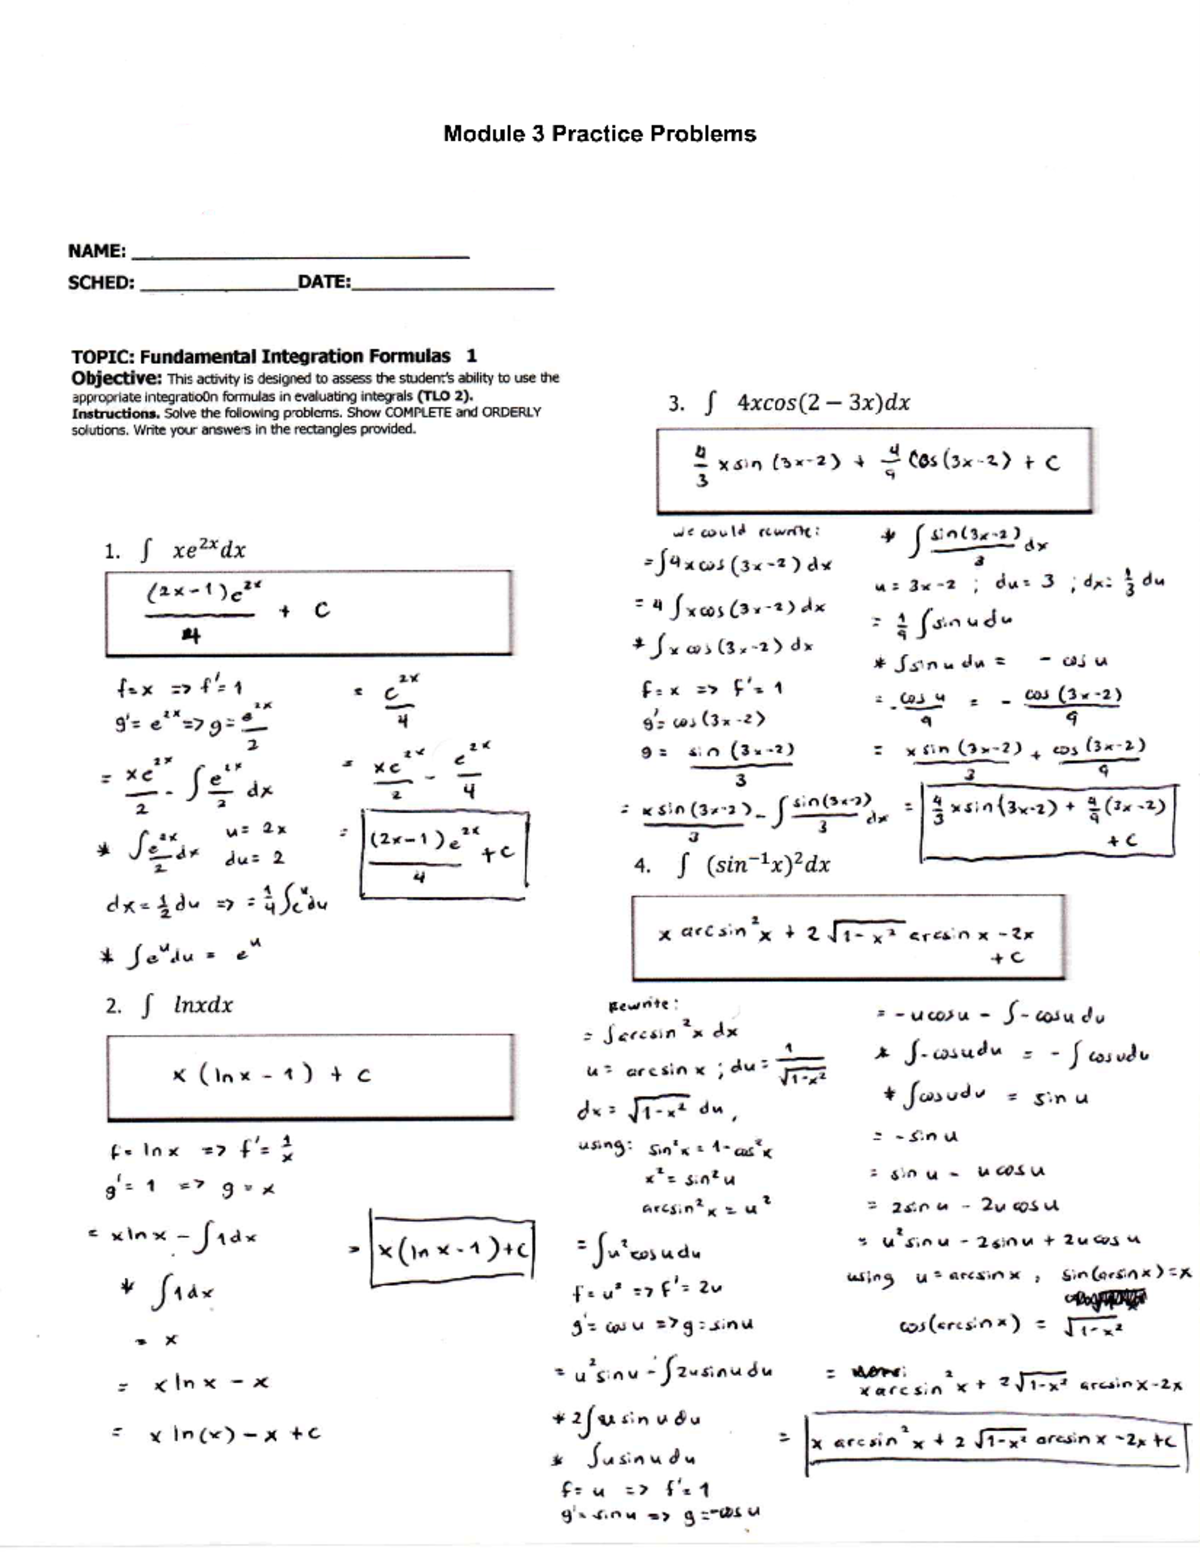 Module 3 Practice Problems
NAME:
SCHED: DATE:
TOPIC: Fundamental Integration Formulas 1
Objective: This activity is designed to assess the student's ability to use the
appropriate integratio0n formulas in evaluating integrals (TLO 2).
Instructions. Solve the following problems. Show COMPLETE and ORDERLY
solutions. Write your answers in the rectangles provided.
1. ∫ xe^{2x}dx
(2x-1)e^{2x}/4 + C
f=x => f'=1
g'= e^{2x} => g= e^{2x}/2
= xe^{2x}/2 - ∫ e^{2x}/2 dx
* ∫ e^{2x}/2 dx u= 2x
du= 2
dx= 1/2 du => = 1/4 ∫e^u du
* ∫e^u du = e^u
= e^{2x}/4
= xe^{2x}/2 - e^{2x}/4
= (2x-1)e^{2x}/4 +C
2. ∫ lnxdx
x (ln x - 1) + C
f= ln x => f'= 1/x
g'= 1 => g = x
= xln x - ∫1dx
* ∫1dx
= x
= x ln x - x
= x ln(x) - x + C
= x(ln x -1)+C
3. ∫ 4xcos(2 − 3x)dx
4/3 x sin (3x-2) + 4/9 cos (3x-2) + C
we could rewrite:
=∫4x cos (3x-2) dx
= 4 ∫x cos (3x-2) dx
* ∫x cos (3x-2) dx
f= x => f'= 1
g'= cos (3x-2)
g = sin (3x-2)/3
= x sin (3x-2)/3 - ∫ sin(3x-2)/3 dx
* ∫ sin(3x-2)/3 dx
u = 3x-2 ; du= 3 ; dx= 1/3 du
= 1/9 ∫sin u du
* ∫sin u du = - cos u
= - cos u/9 = - cos (3x-2)/9
= x sin (3x-2)/3 + cos (3x-2)/9
= 4/3 x sin(3x-2) + 4/9 (3x-2)
+ C
4. ∫ (sin^{−1}x)^2dx
x arcsin^2 x + 2 √(1-x^2) arcsin x -2x
+ C
Rewrite:
= ∫arcsin^2 x dx
u= arcsin x ; du= 1/√(1-x^2)
dx= √(1-x^2) du,
using: sin^2 x = 1-cos^2 x
x^2= sin^2 u
arcsin^2 x = u^2
= ∫u^2 cos u du
f= u^2 => f'= 2u
g'= cos u => g= sin u
= u^2 sin u - ∫2u sin u du
* 2∫u sin u du
* ∫u sin u du
f= u => f'= 1
g'= sin u => g=-cos u
= -u cos u - ∫-cos u du
* ∫-cos u du = -∫cos u du
* ∫cos u du = sin u
= - sin u
= sin u - u cos u
= 2sin u - 2u cos u
= u^2 sin u - 2sin u + 2u cos u
using u = arcsin x , sin(arsin x)=x
cos(arcsin x) = √(1-x^2)
= x arcsin^2 x + 2√(1-x^2) arcsin x -2x
= x arcsin^2 x + 2 √(1-x^2) arcsin x -2x +C